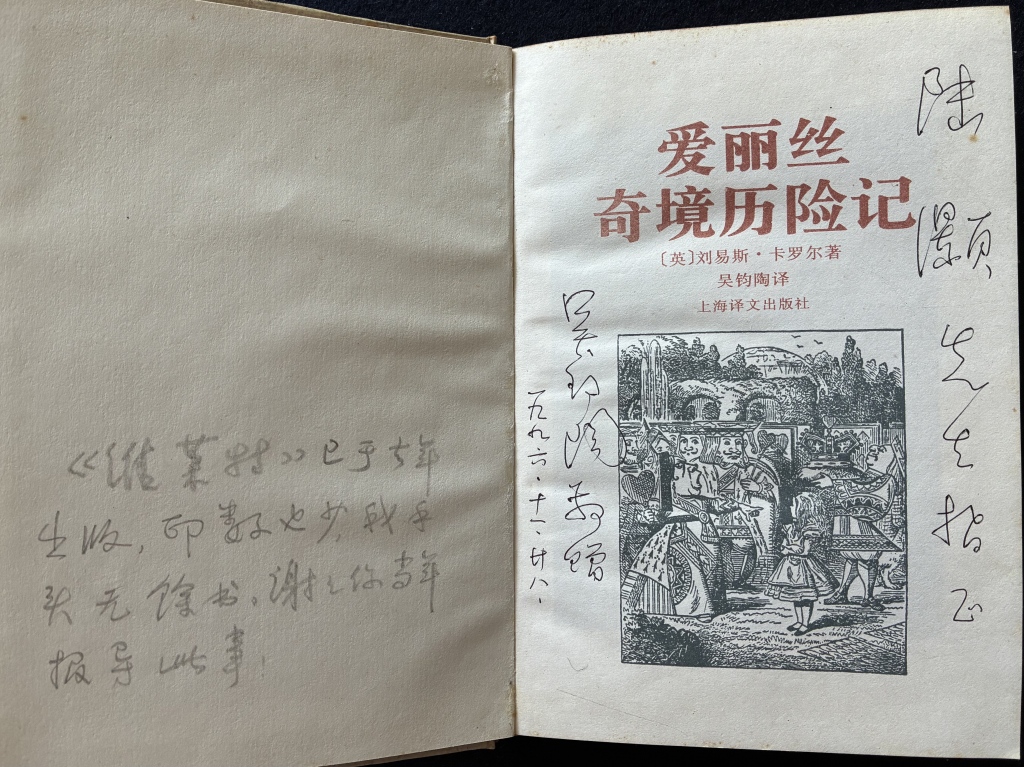 《维莱特》已于去年
出版，印数也少，我手
头无馀书。谢谢你当年
报导此事.
爱丽丝
奇境历险记
〔英〕刘易斯·卡罗尔著
吴钧陶译
上海译文出版社
陆灏先生指正
吴钧陶敬赠
一九九六.十一.廿八.